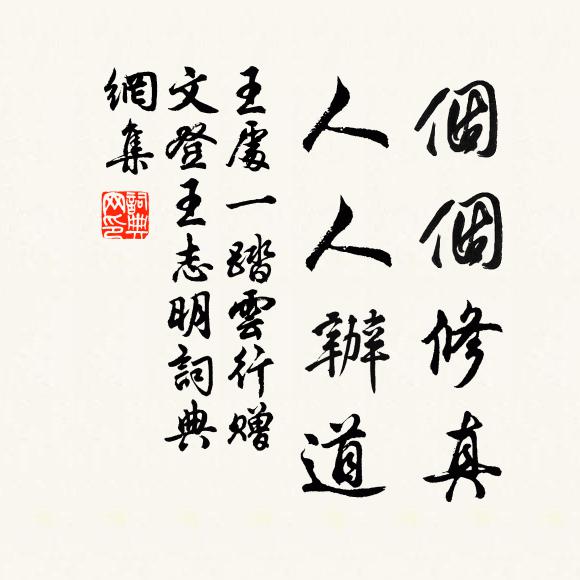 個個修真
人人辦道
王處一踏雲行贈
文登王志明詞典
網集
詞典
网印